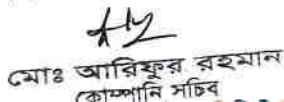 মোঃ আরিফুর রহমান
কোম্পানি সচিব